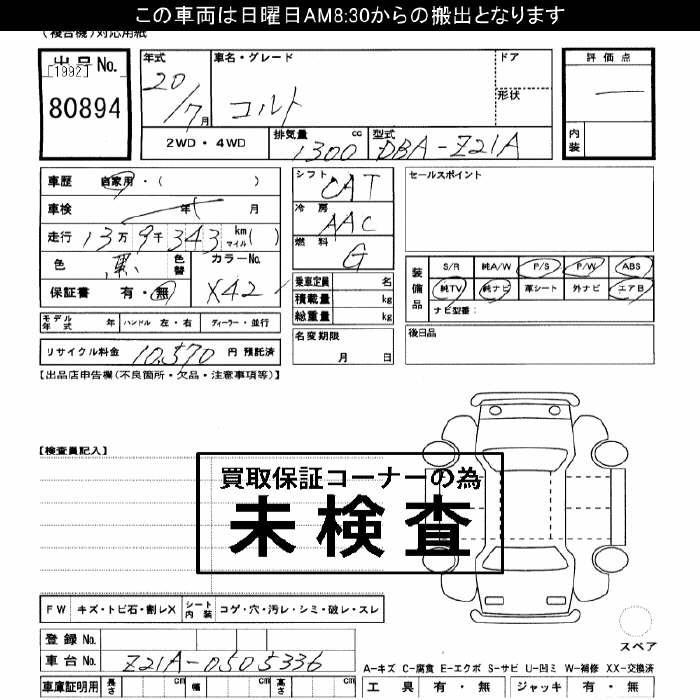 この車両は日曜日AM8:30からの搬出となります
(複合機)対応用紙
出品No.
[1992]
80894
年式
20/7月
車名・グレード
コルト
ドア
形状
評価点
内装
2WD・4WD
排気量 1300 cc
型式 DBA-Z21A
車歴 自家用・( )
車検 年 月
走行 13万9千343 km マイル( )
色 黒 色替
カラーNo. X42
保証書 有・無
シフト CAT
冷房 AAC
燃料 G
乗車定員 名
積載量 kg
総重量 kg
セールスポイント
装備品
S/R 純A/W P/S P/W ABS
純TV 純ナビ 革シート 外ナビ エアB
ナビ型番:
モデル年式 年 ハンドル 左・右 ディーラー・並行
名変期限
月 日
後日品
リサイクル料金 10,570 円 預託済
【出品店申告欄(不良箇所・欠品・注意事項等)】
【検査員記入】
買取保証コーナーの為
未検査
FW キズ・トビ石・割レX シート内装 コゲ・穴・汚レ・シミ・破レ・スレ
スペア
登録No.
車台No. Z21A-0505336
A-キズ C-腐食 E-エクボ S-サビ U-凹ミ W-補修 XX-交換済
車庫証明用 長さ cm 幅 cm 高さ cm
工具 有・無 ジャッキ 有・無